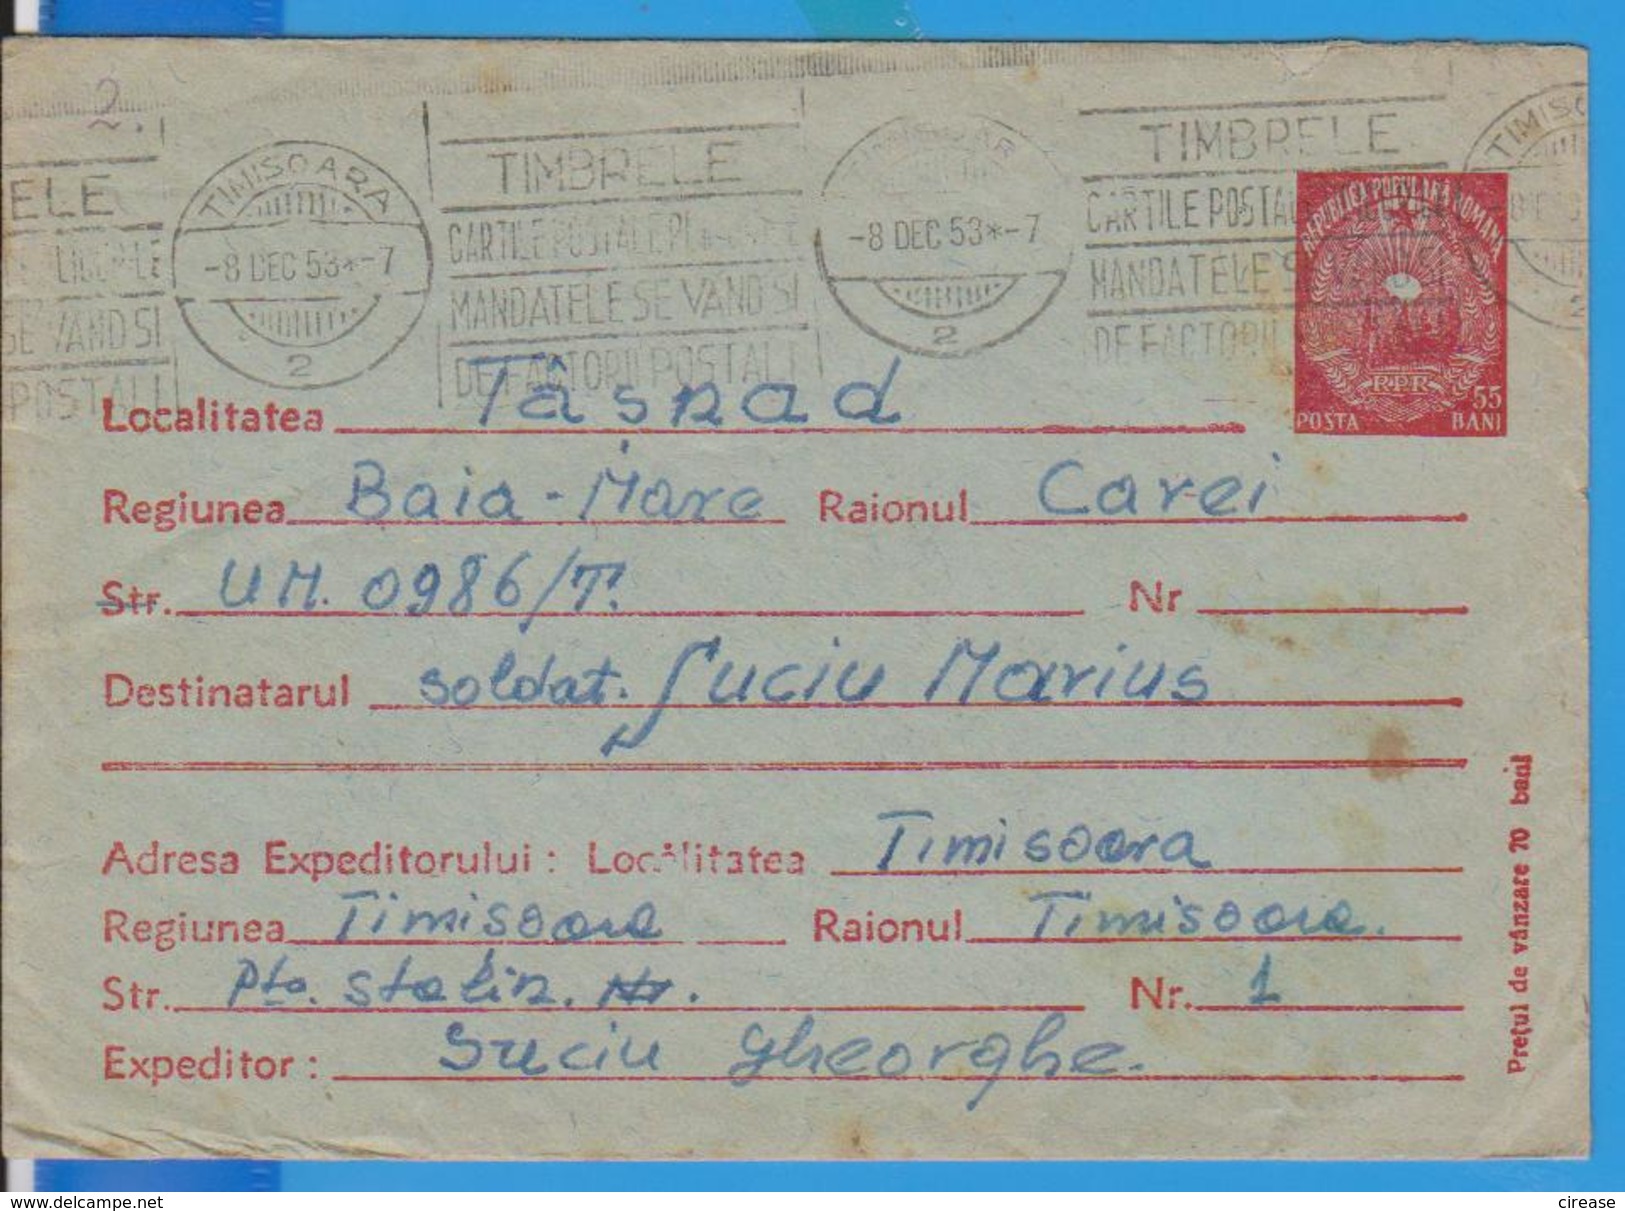 2.
TIMISOARA
-8 DEC 53*-7
2
TIMBRELE
CARTILE POSTALE
MANDATELE SE VAND SI
DE FACTORII POSTALI
-8 DEC 53*-7
2
TIMBRELE
CARTILE POSTAL
MANDATELE S
DE FACTORII
ELE
SE VAND SI
POSTALI
REPUBLICA POPULARĂ ROMÂNĂ
RPR
55
POȘTA BANI
Localitatea Tâsnad
Regiunea Baia-Mare Raionul Carei
Str. U.M. 0986/T. Nr
Destinatarul soldat. Suciu Marius
Adresa Expeditorului: Localitatea Timisoara
Regiunea Timisoara Raionul Timisoara.
Str. Pta. Stalin. Nr. Nr. 1
Expeditor: Suciu Gheorghe.
Prețul de vânzare 70 bani
www.delcampe.net
cirease